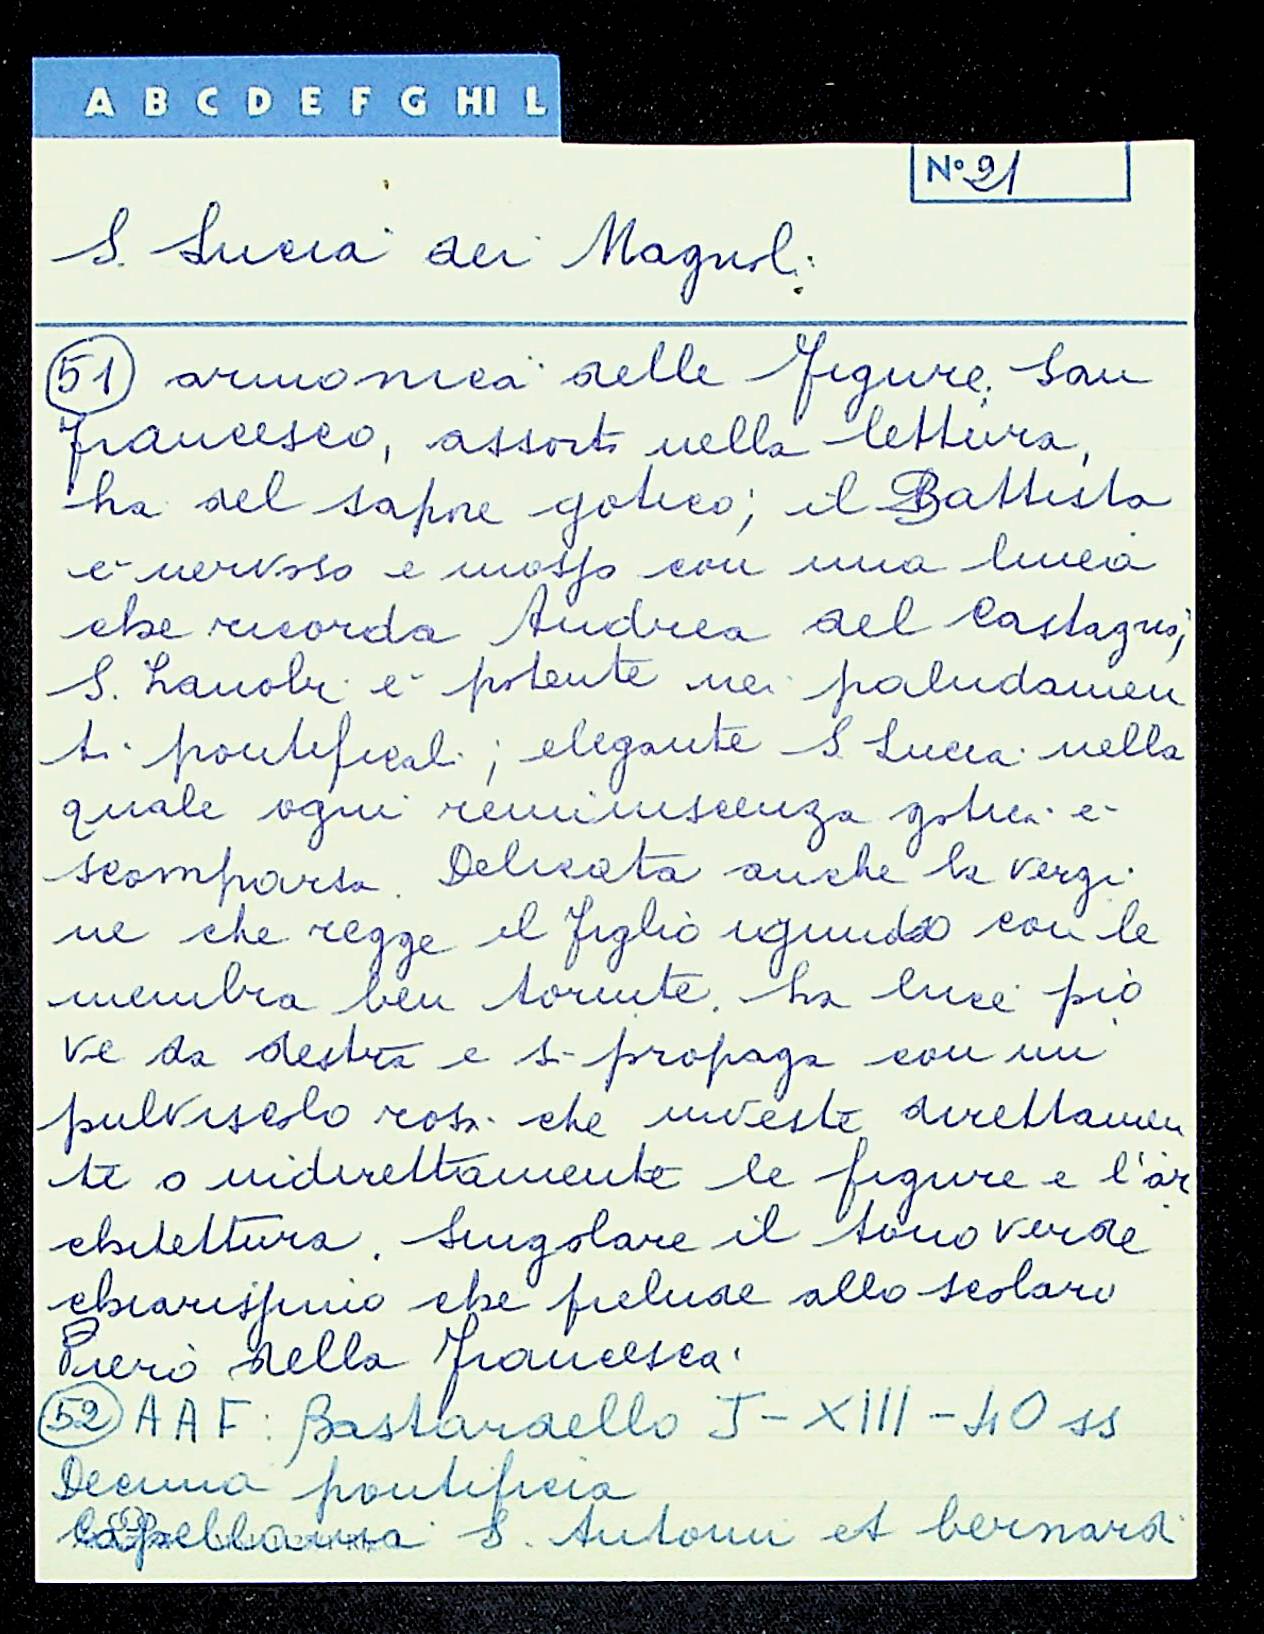 A B C D E F G HI L
N° 21
S. Lucia dei Magnoli
51 armonica delle figure. San
Francesco, assorto nella lettura,
ha del sapore gotico; il Battista
è nervoso e mosso con una linea
che ricorda Andrea del Castagno;
S. Zanobi è potente nei paludamen
ti pontificali; elegante S. Lucia nella
quale ogni reminiscenza gotica è
scomparsa. Delicata anche la Vergi
ne che regge il figlio ignudo con le
membra ben tornite. La luce pio
ve da destra e si propaga con un
pulviscolo rosa che investe direttamen
te o indirettamente le figure e l'ar
chitettura. Singolare il tono verde
chiarissimo che prelude allo scolaro
Piero della Francesca.
52 AAF: Bastardello I-XIII-40 ss
Decima pontificia
Cappellania S. Antonii et bernardi